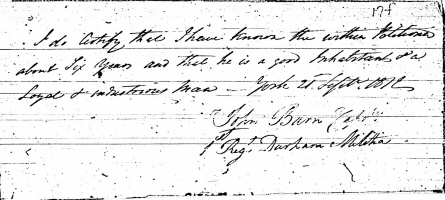 I do Certify that I have Known the within Petitioner
about Six Years and that he is a good Inhabitant & a
Loyal & industrious Man – York 21 Septr. 1812
John Burn Captn.
1st Regt. Durham Militia